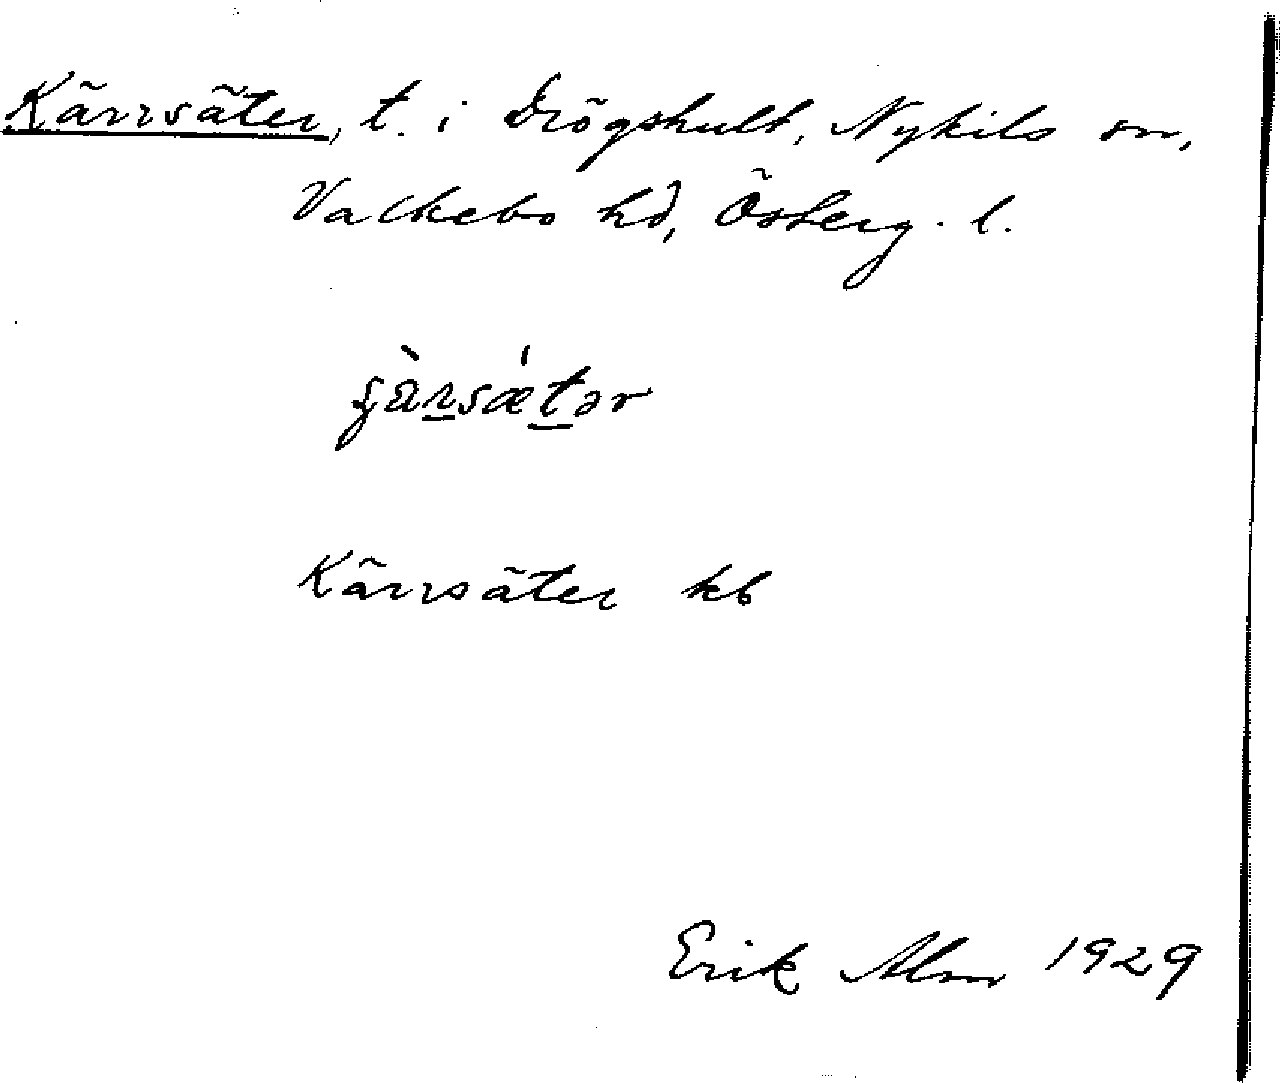 Kärrsäter, t. i Drögshult, Nykils sn,
Valkebo hd, Österg. l.
Kärrsäter kb
Erik Alm 1929